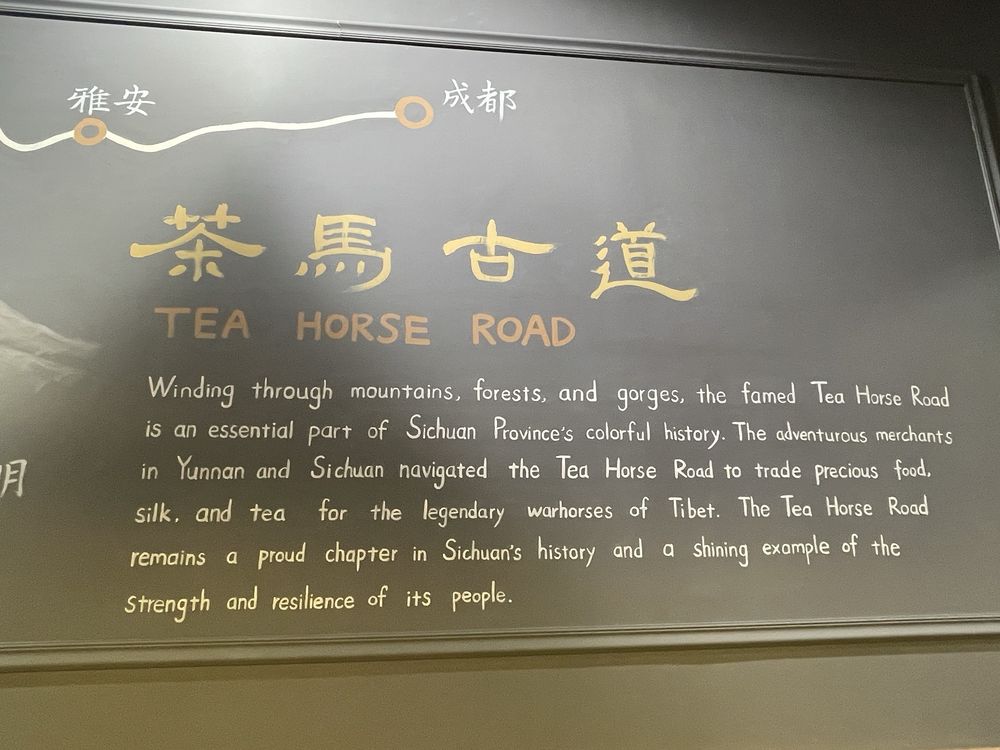 雅安
成都
茶馬古道
TEA HORSE ROAD
Winding through mountains, forests, and gorges, the famed Tea Horse Road
is an essential part of Sichuan Province's colorful history. The adventurous merchants
in Yunnan and Sichuan navigated the Tea Horse Road to trade precious food,
明
silk, and tea for the legendary warhorses of Tibet. The Tea Horse Road
remains a proud chapter in Sichuan's history and a shining example of the
strength and resilience of its people.